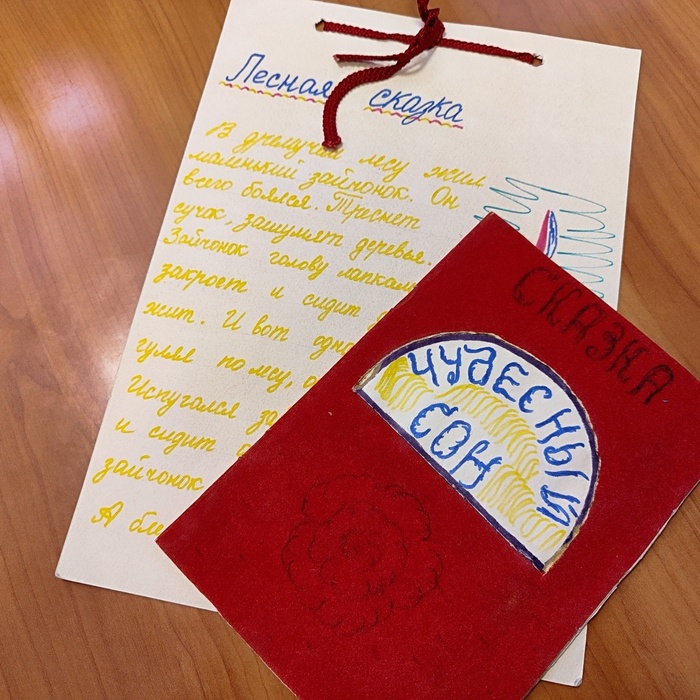 Лесная сказка
В дремучем лесу жил
маленький зайчонок. Он
всего боялся. Треснет
сучок, зашумят деревья.
Зайчонок голову лапками
закроет и сидит
жит. И вот
гуляя по лесу,
Испугался
и сидит
зайчонок
А
СКАЗКА
ЧУДЕСНЫЙ
СОН